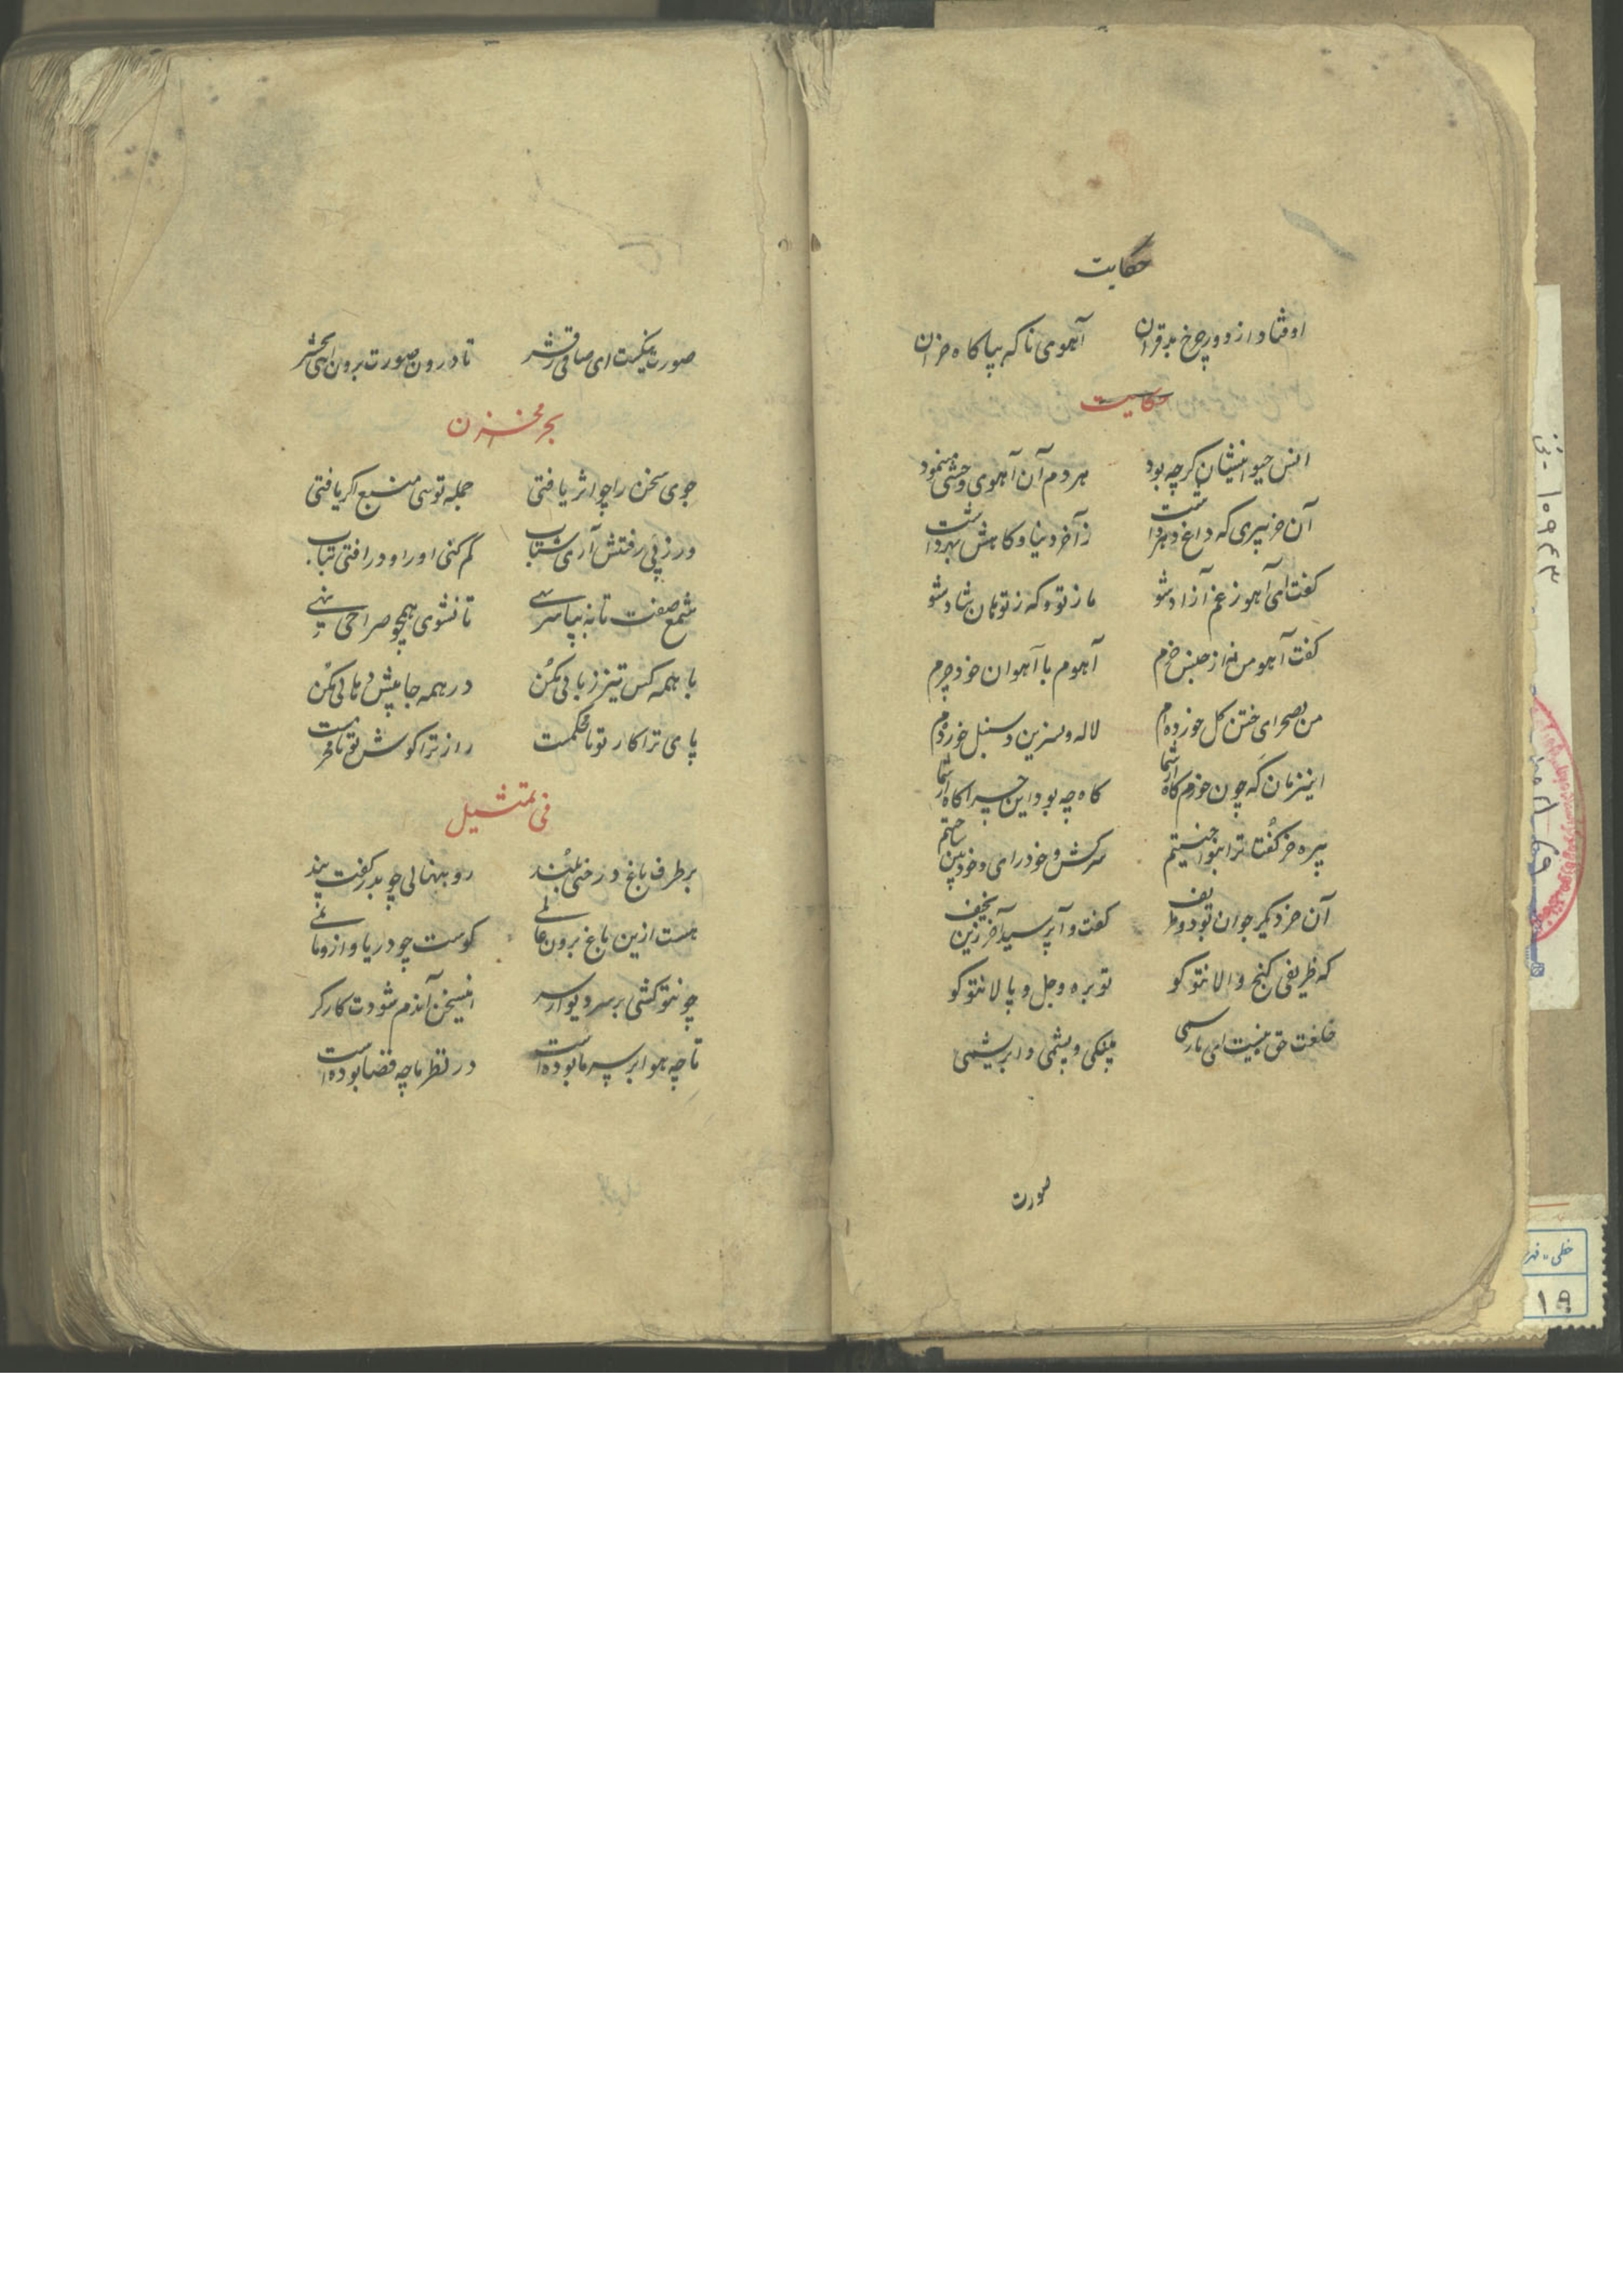 حکایت
اوفتاد از دور چرخ بدقران آهوی ناکه بپاکاه خران
حکایت
انس حیوانیشان کرچه بود هر دم آن آهوی وحشی مینمود
آن خر پیری که داغ دهر داشت ز آخر دنیا و کاهش بهر داشت
کفت ای آهو ز غم آزاد شو ما ز تو وکه ز تومان شاد شو
کفت آهو من نه از جنس خرم آهوم با آهوان خود چرم
من بصحرای ختن کل خورده‌ام لاله و نسرین و سنبل خورده‌ام
اینزمان که چون خورم کاه از شما کاه چه بود این چراکاه از شما
پیره خر کفتا ترا بنواختیم سرکش و خودرای و خودبین ساختیم
آن خر دیکر جوان بود و ظریف کفت و آپرسید آخر زین نحیف
که ظریفی کنج والانتو کو توبره و جل و پالانتو کو
خلعت حق نیست ای نارسی پلنکی و پشمی و ابریشمی
صورت
صورت نیکست ای صافی قشر تا درون صورت برون اهی حشر
بحر مخزن
جوی سخن را چو اثر یافتی جمله توسی منبع اکر یافتی
ور ز پی رفتنش آری شتاب کم کنی او را و درافتی بتاب
شمع صفت تا نه بپا سرسی تا نشوی همچو صراحی
با همه کس تیز زبانی مکن در همه جا پیش دهانی مکن
پای ترا کار تو نامحکمست راز ترا کوش تو نامحرمست
فی تمثیل
بر طرف باغ درختی بلند رو بنهالی چو بدر کفت پند
هست ازین باغ برون عالمی کوست چو دریا و ازو مانمی
چونتو کشی بر سر دیوار سر اینسخن آندم شودت کارکر
تا چه هوا بر سر ما بوده است در نظر ما چه فضا بوده است
۱۰۹۴۳
خطی - فهر
۱۹